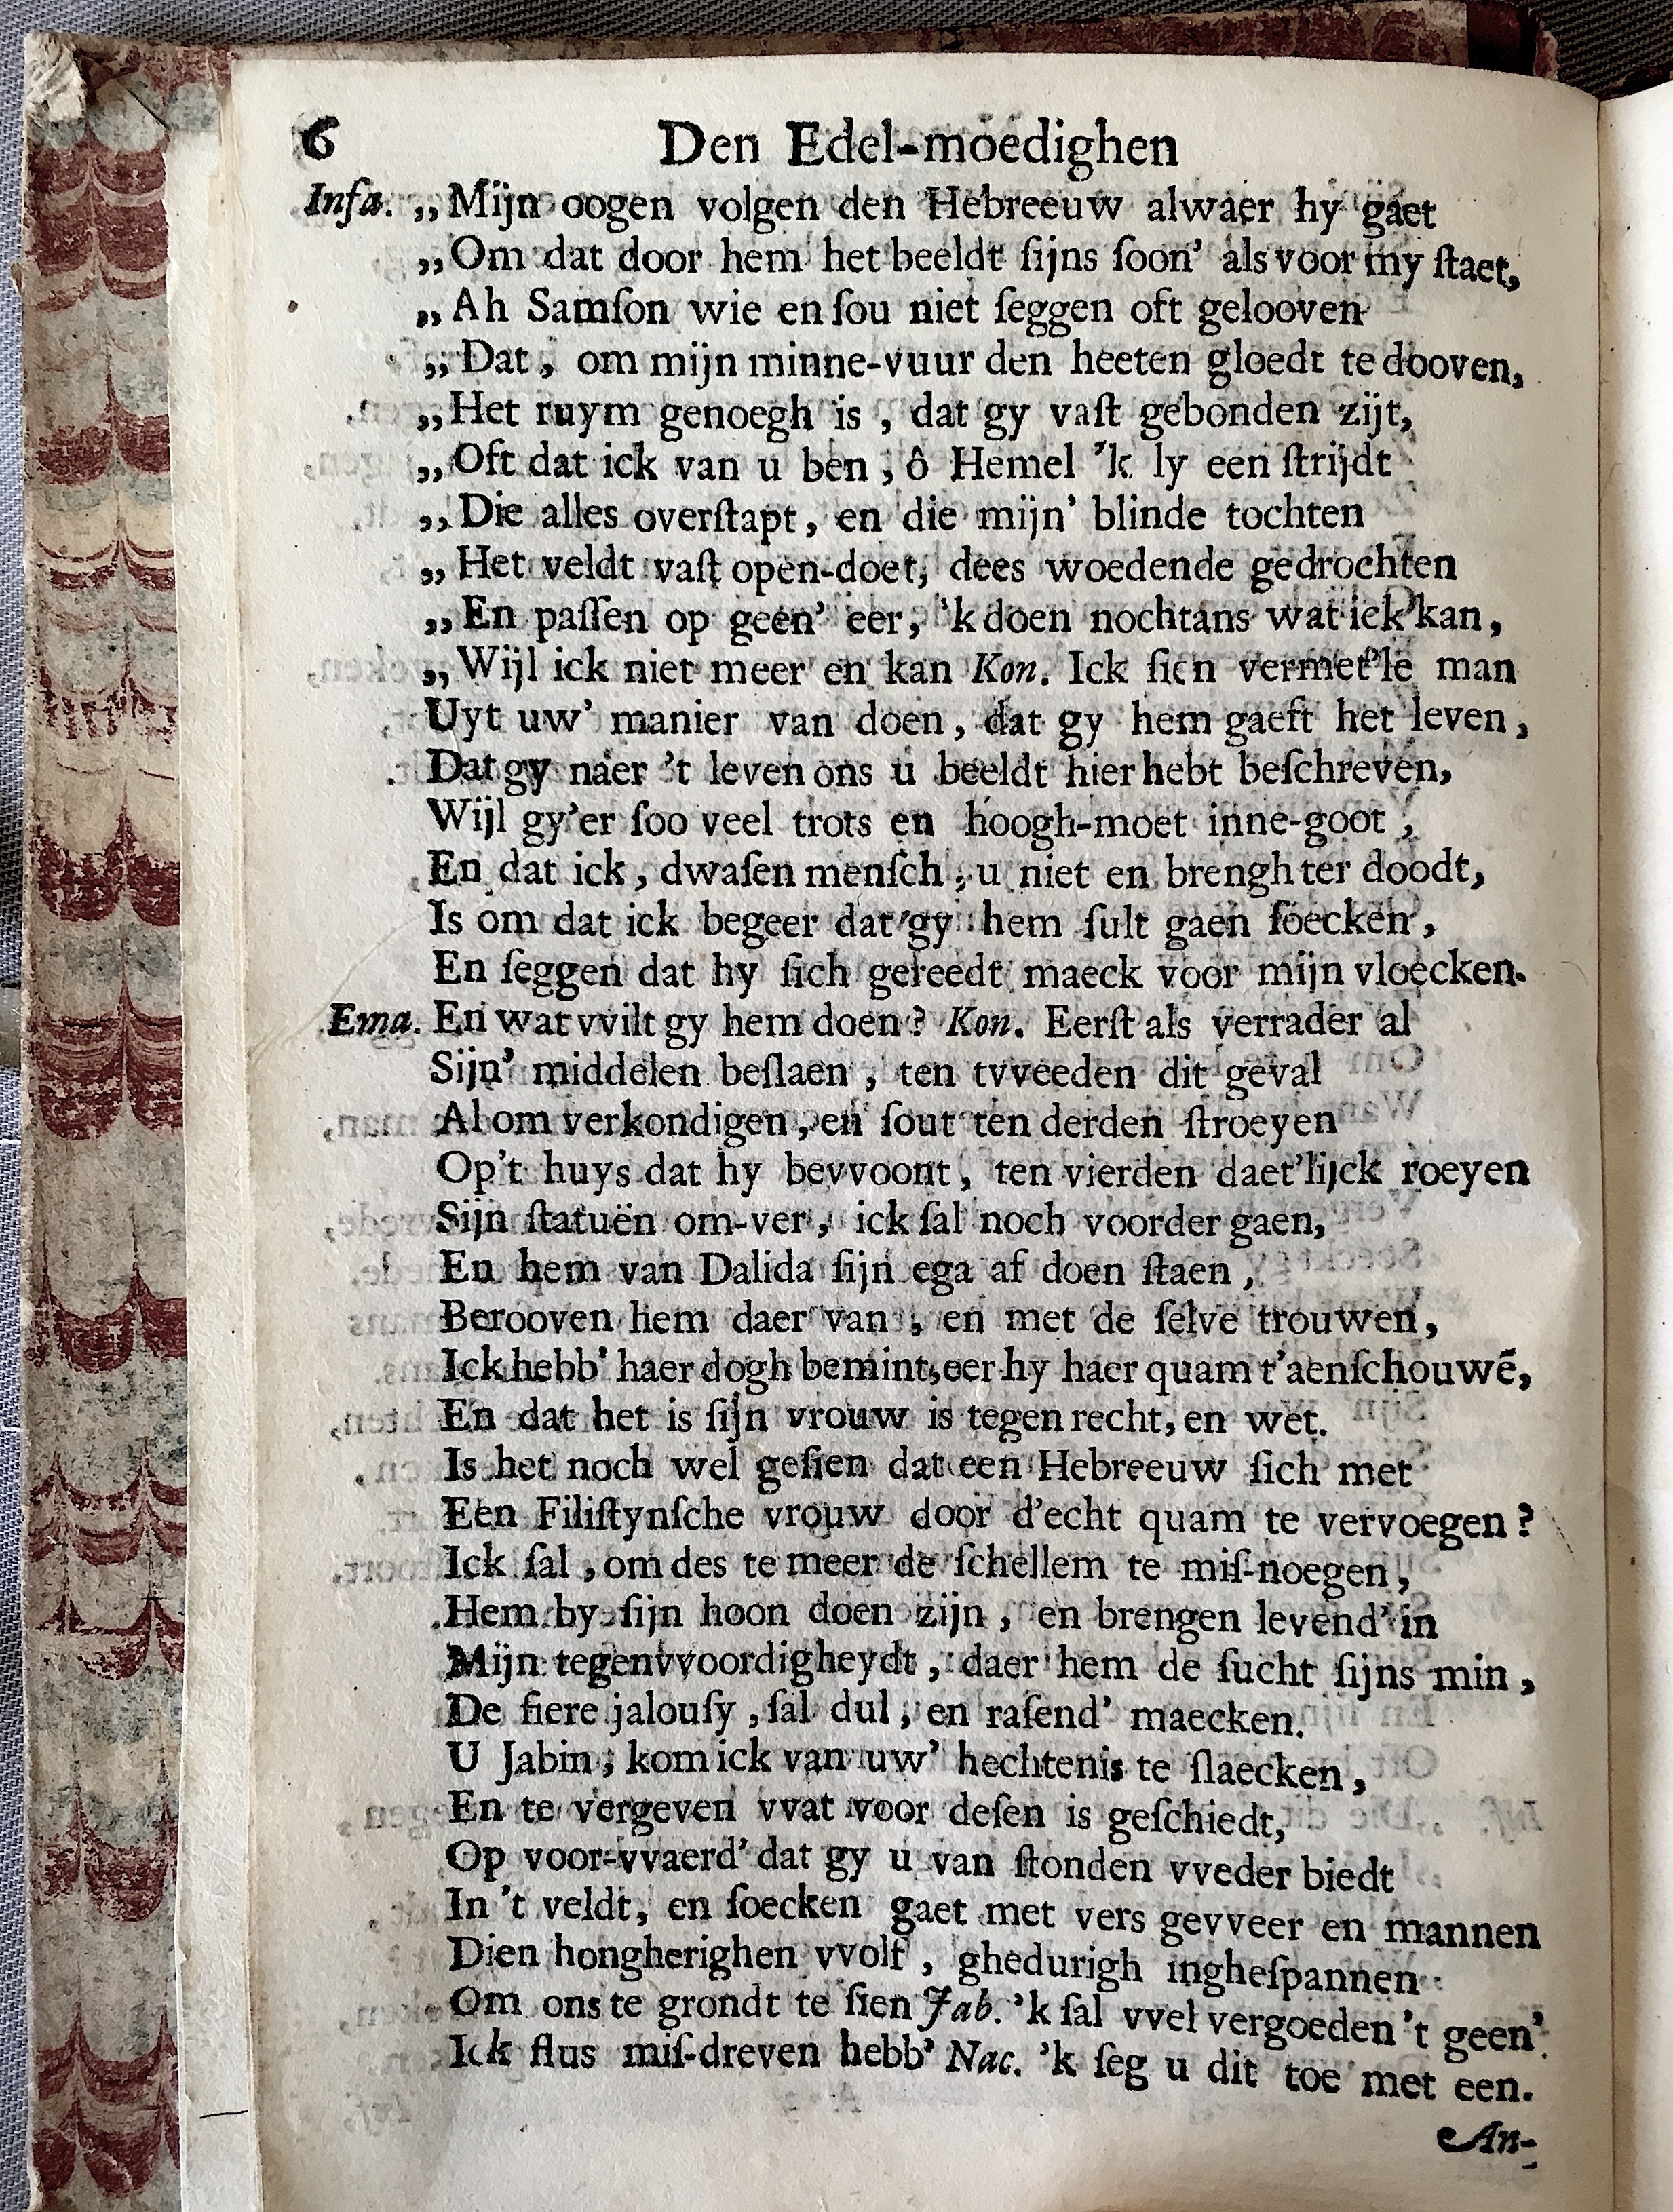 6 Den Edel-moedighen
Infa. ,,Mijn oogen volgen den Hebreeuw alwaer hy gaet
,,Om dat door hem het beeldt ſijns ſoon' als voor my ſtaet,
,,Ah Samſon wie en ſou niet ſeggen oft gelooven
,,Dat, om mijn minne-vuur den heeten gloedt te dooven,
,,Het ruym genoegh is, dat gy vaſt gebonden zijt,
,,Oft dat ick van u ben, ô Hemel 'k ly een ſtrijdt
,,Die alles overſtapt, en die mijn' blinde tochten
,,Het veldt vaſt open-doet, dees woedende gedrochten
,,En paſſen op geen' eer, 'k doen nochtans wat ick kan,
,,Wijl ick niet meer en kan Kon. Ick ſien vermet'le man
Uyt uw' manier van doen, dat gy hem gaeft het leven,
Dat gy naer 't leven ons u beeldt hier hebt beſchreven,
Wijl gy'er ſoo veel trots en hoogh-moet inne-goot,
En dat ick, dwaſen menſch, u niet en brengh ter doodt,
Is om dat ick begeer dat gy hem ſult gaen ſoecken,
En ſeggen dat hy ſich gereedt maeck voor mijn vloecken.
Ema. En wat vvilt gy hem doen? Kon. Eerſt als verrader al
Sijn' middelen beſlaen, ten tvveeden dit geval
Alom verkondigen, en ſout ten derden ſtroeyen
Op't huys dat hy bevvoont, ten vierden daet'lijck roeyen
Sijn ſtatuën om-ver, ick ſal noch voorder gaen,
En hem van Dalida ſijn ega af doen ſtaen,
Berooven hem daer van, en met de ſelve trouwen,
Ick hebb' haer dogh bemint, eer hy haer quam t'aenſchouwē,
En dat het is ſijn vrouw is tegen recht, en wet.
Is het noch wel geſien dat een Hebreeuw ſich met
Een Filiſtynſche vrouw door d'echt quam te vervoegen?
Ick ſal, om des te meer de ſchellem te miſ-noegen,
Hem by ſijn hoon doen zijn, en brengen levend' in
Mijn tegenvvoordigheydt, daer hem de ſucht ſijns min,
De fiere jalouſy, ſal dul, en raſend' maecken.
U Jabin, kom ick van uw' hechtenis te ſlaecken,
En te vergeven vvat voor deſen is geſchiedt,
Op voor-vvaerd' dat gy u van ſtonden vveder biedt
In 't veldt, en ſoecken gaet met vers gevveer en mannen
Dien hongherighen vvolf, ghedurigh ingheſpannen
Om ons te grondt te ſien Jab. 'k ſal vvel vergoeden 't geen'
Ick flus miſ-dreven hebb' Nac. 'k ſeg u dit toe met een.
An-